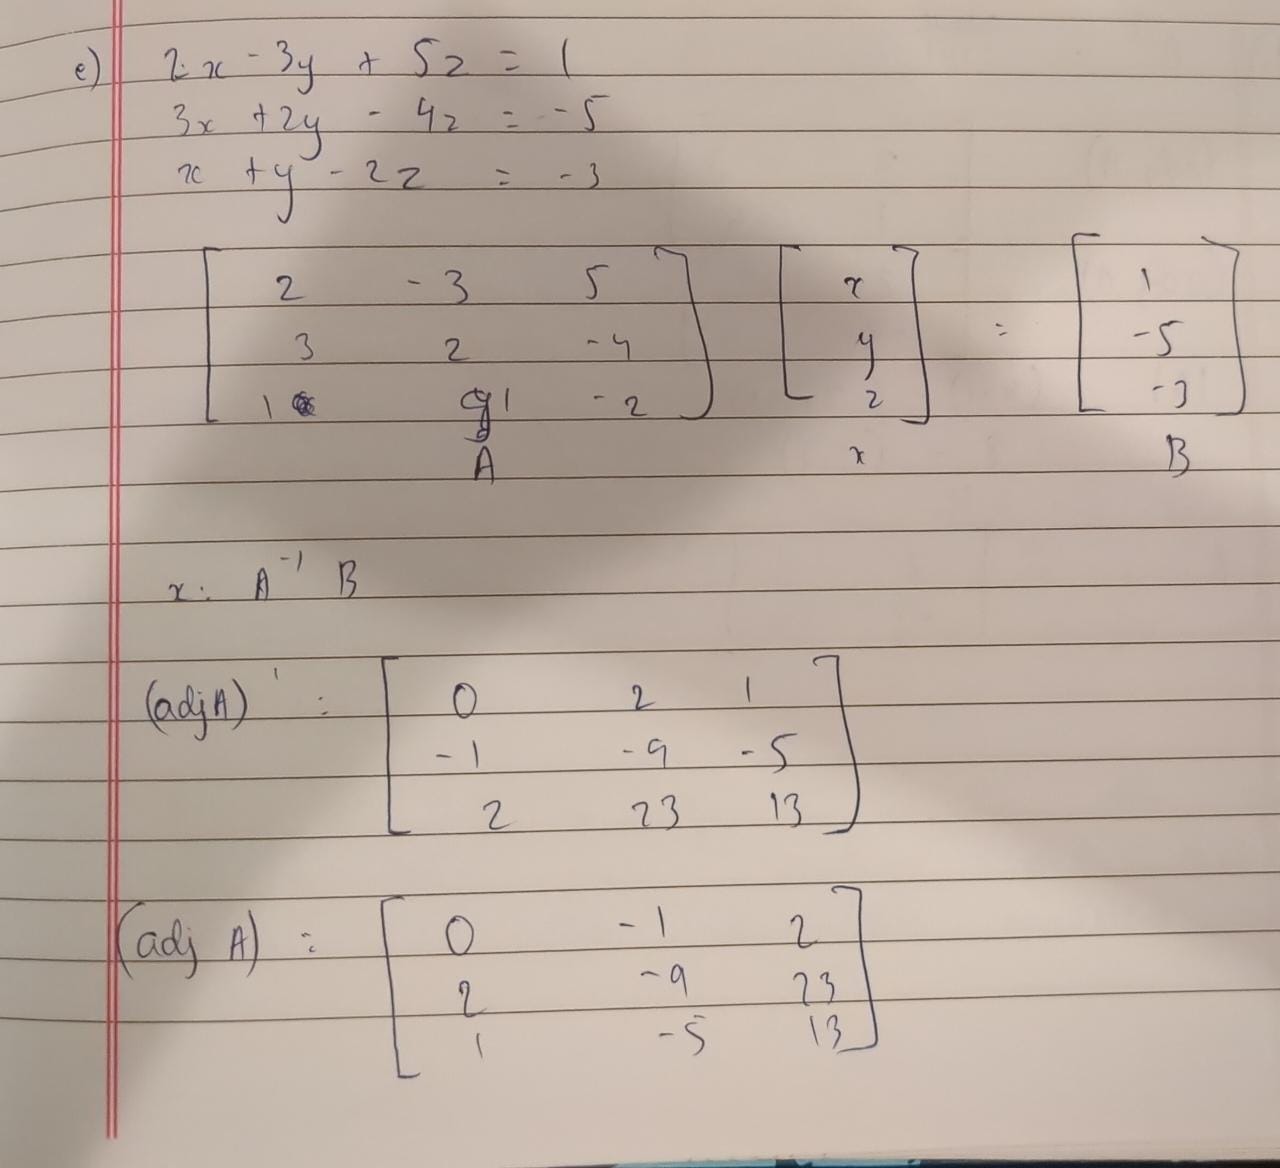 e) 2x - 3y + 5z = 1
3x + 2y - 4z = -5
x + y - 2z = -3
2 -3 5 x 1
3 2 -4 y = -5
1 1 -2 z -3
A x B
x: A⁻¹ B
(adjA)' : 0 2 1
-1 -9 -5
2 23 13
(adj A) : 0 -1 2
2 -9 23
1 -5 13